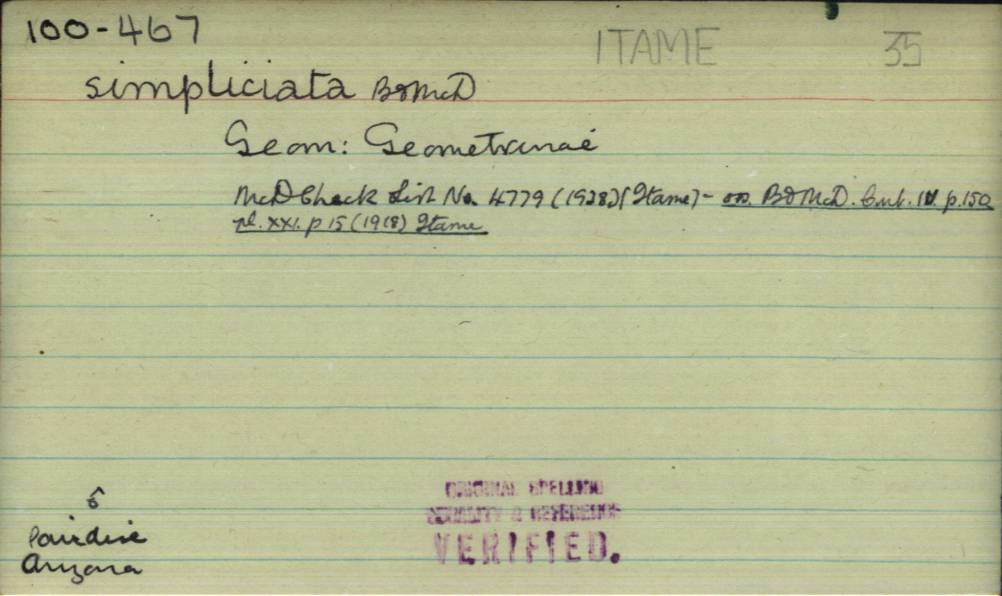 100-467
ITAME 35
simpliciata B&McD
Geom: Geometrinae
McD Check List No. 4779 (1928) (Itame) - B&McD. Cont. IV. p.150
pl. XXI. p 15 (1918) Itame
ORIGINAL SPELLING
LOCALITY & REFERENCE
VERIFIED.
Paradise
Arizona